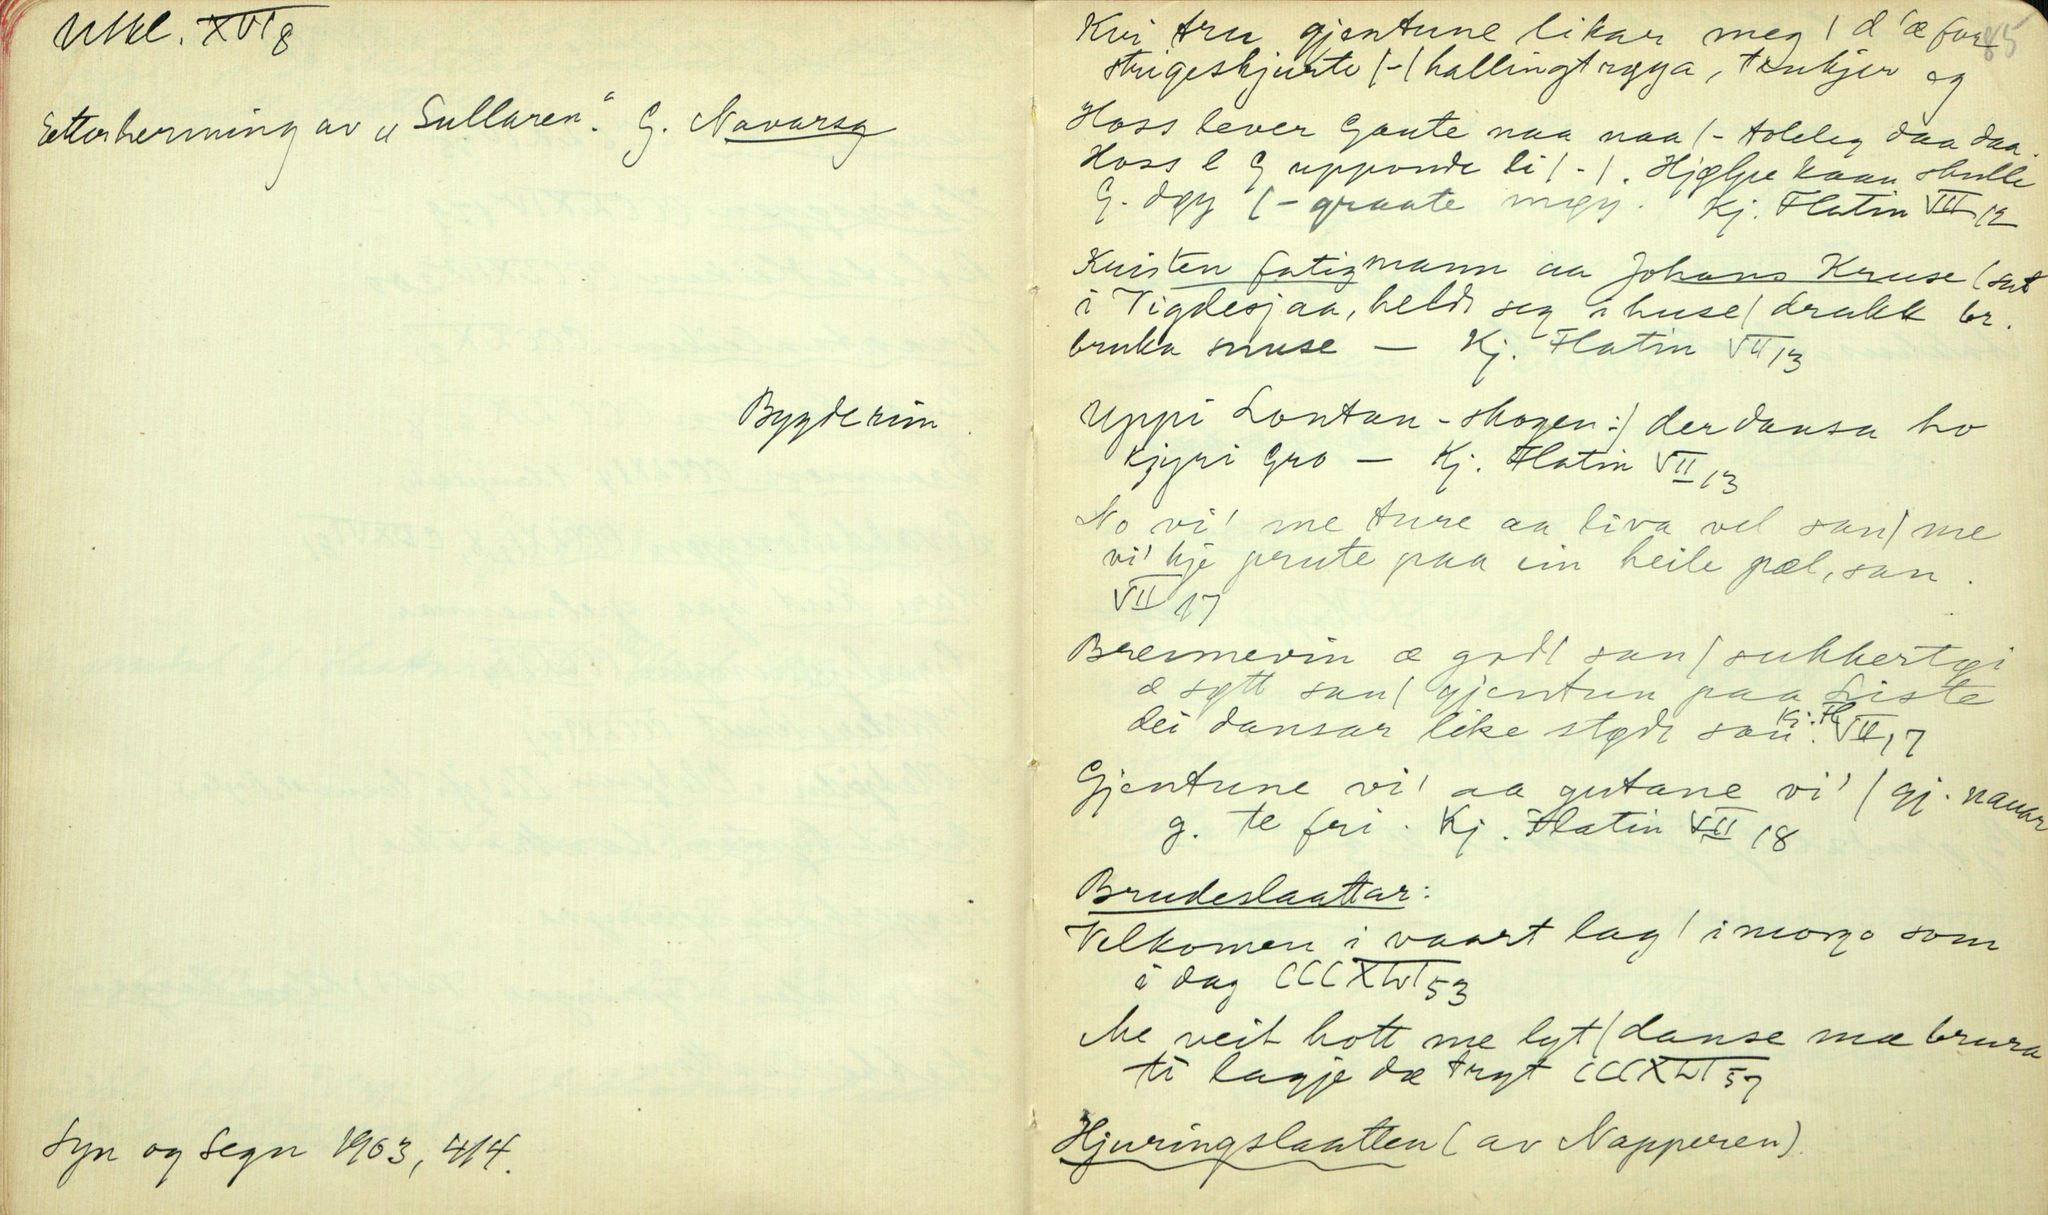 Utkl. XVI 8
Etterherming av "Sullaren". G. Navarsg
Bygderim
Syn og Segn 1903, 414.
85
Kvi tru gjentune likar meg / d'æ for
strigeskjurte /-/ hallingtrøya, trukjer og
Hoss lever Gaute naa naa /- toleleg daa daa.
Hoss l G upponde li /-/. Hjølpe kaan skulle
G. døy /- graate møy. Kj. Flatin VII 12
Kristen fatigmann aa Johans Kruse (sat
i Vigdesjaa, heldt seg i huse / drakk br.
bruka snuse — Kj. Flatin VII 13
Uppi Lontan-skogen :/ der dansa ho
kjyri Gro — Kj. Flatin VII 13
No vi' me ture aa liva vel san / me
vi' kje prute paa ein heile pæl, san.
VII 17
Brennevin æ godt san / sukkertøi
æ søtt san / gjentun paa Liste
dei dansar like stødt san. Kj. Fl. VII, 17
Gjentune vi' aa gutane vi' / gj. nauar
g. te fri. Kj. Flatin VII 18
Brudeslaattar:
Velkomen i vaart lag / imorgo som
i dag CCCXLVI 53
Me veit hott me lyt / danse mæ brura
ti lagje dæ tryt CCCXLVI 57
Hjuringslaatten (av Napperen)